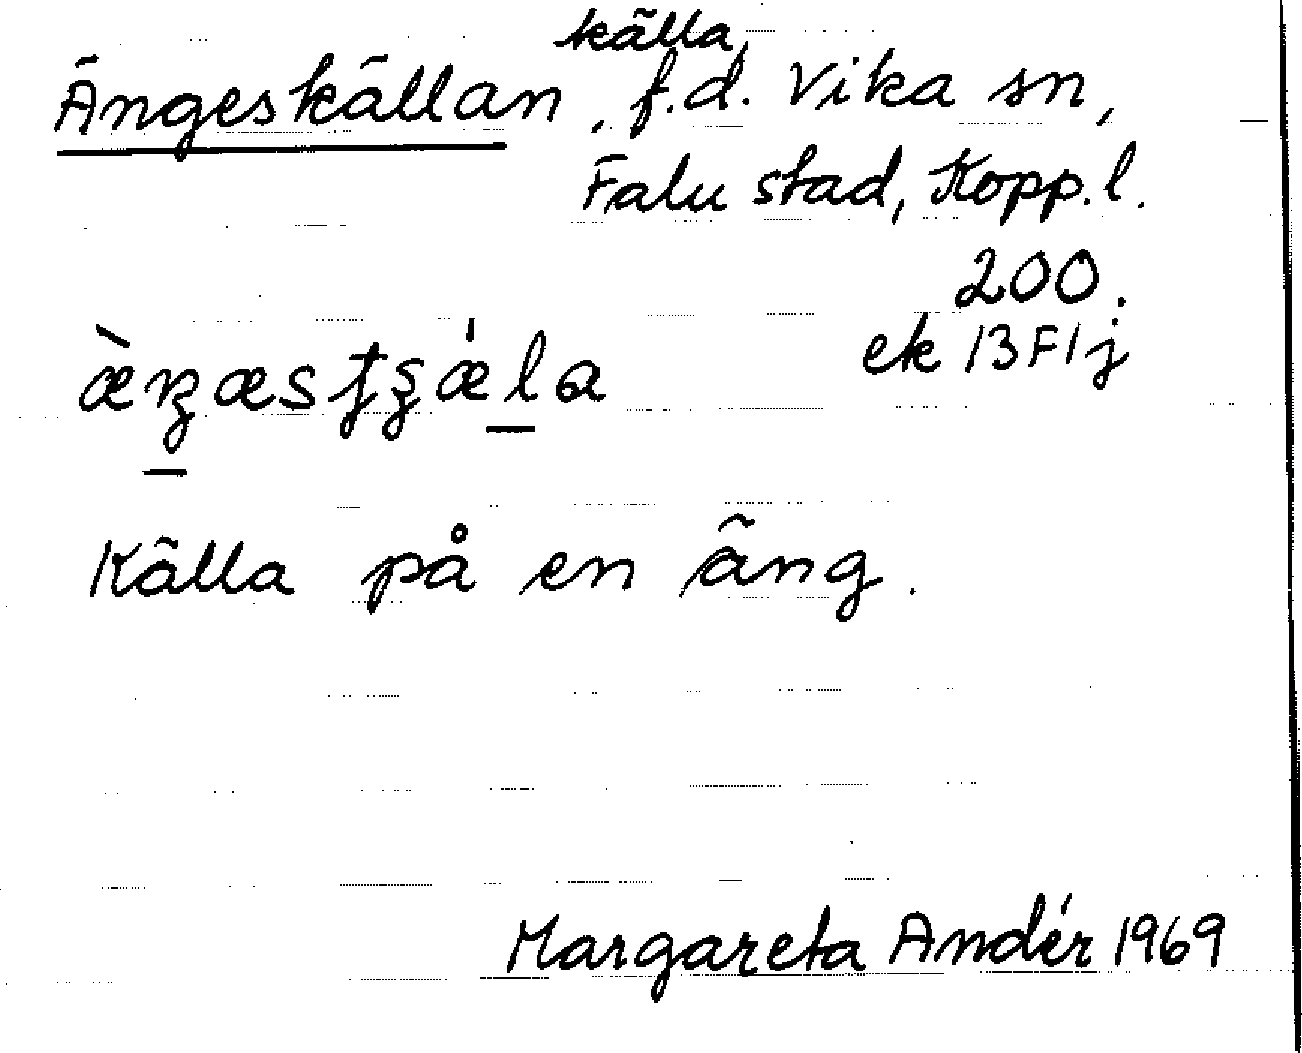 källa,
Ängeskällan, f.d. Vika sn,
Falu stad, Kopp. l.
200.
ek 13F1j
Källa på en äng.
Margareta Andér 1969